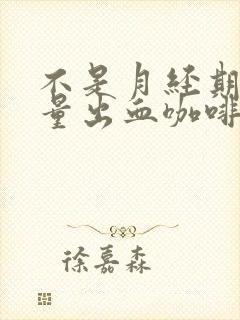 不是月经期
量出血咖啡
徐嘉森